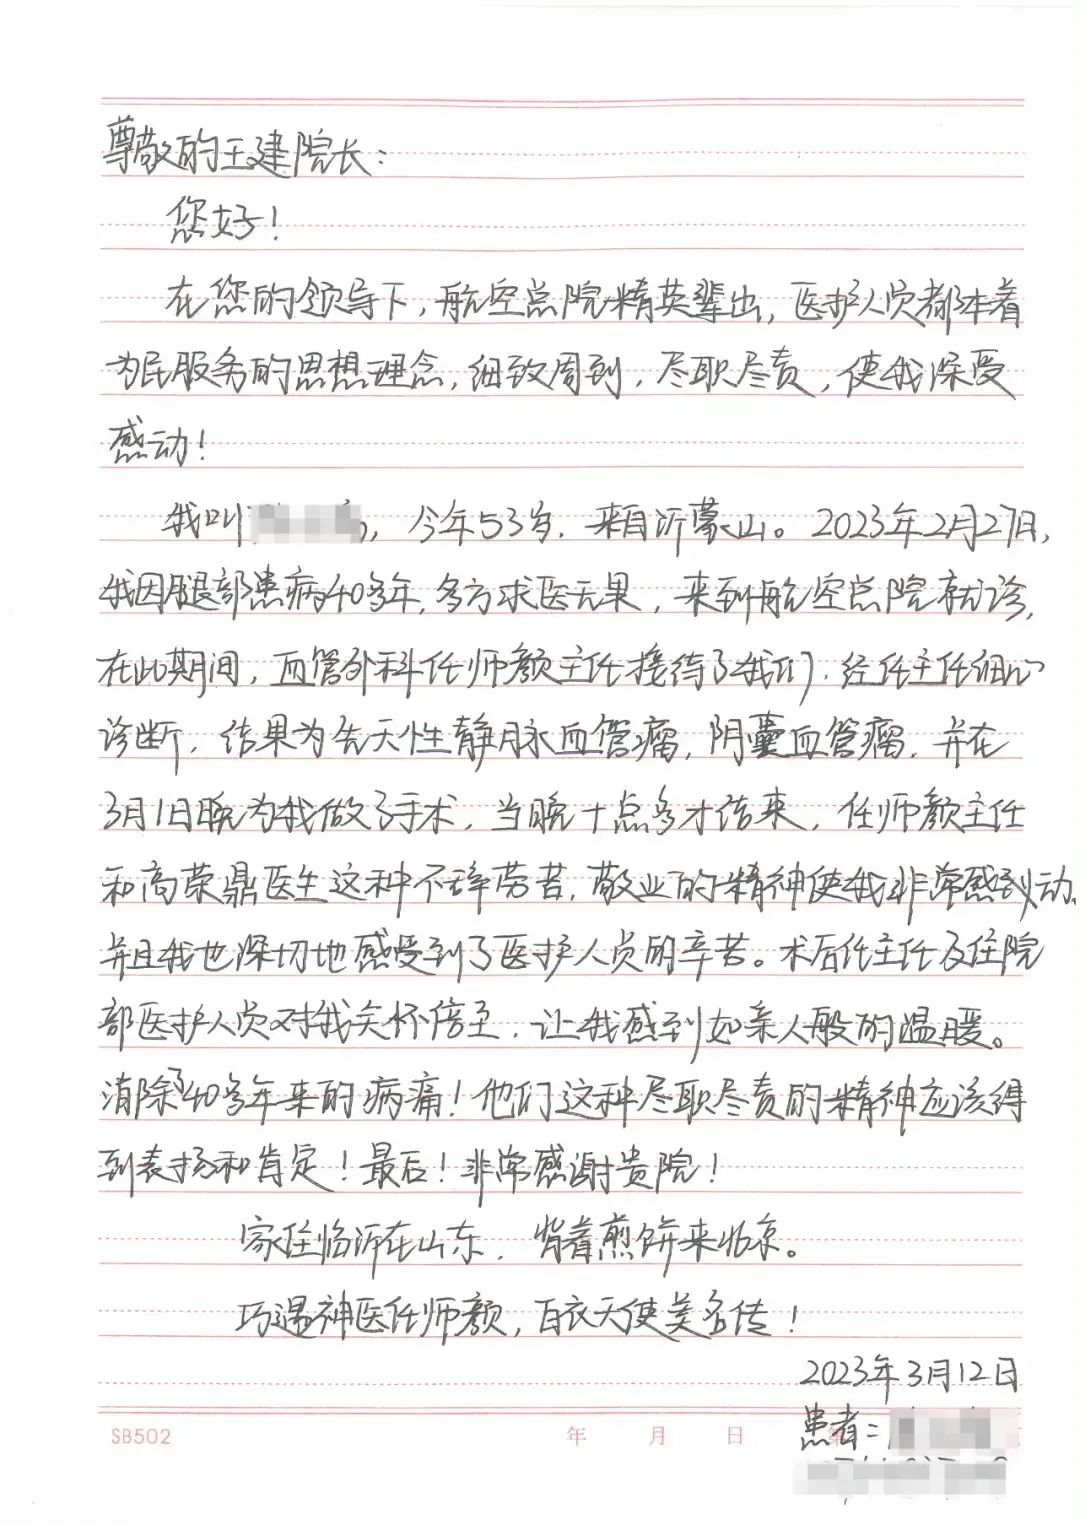 尊敬的王建院长：
您好！
在您的领导下，航空总院精英辈出，医护人员都本着
为民服务的思想理念，细致周到，尽职尽责，使我深受
感动！
我叫，今年53岁，来自沂蒙山。2023年2月27日，
我因腿部患病40多年，多方求医无果，来到航空总院就诊，
在此期间，血管外科任师颜主任接待了我们，经任主任细心
诊断，结果为先天性静脉血管瘤，阴囊血管瘤，并在
3月1日晚为我做了手术，当晚十点多才结束，任师颜主任
和高荣鼎医生这种不辞劳苦，敬业的精神使我非常感到动。
并且我也深切地感受到了医护人员的辛苦。术后任主任及住院
部医护人员对我关怀倍至，让我感到如亲人般的温暖。
消除了40多年来的病痛！他们这种尽职尽责的精神应该得
到表扬和肯定！最后！非常感谢贵院！
家住临沂在山东，背着煎饼来北京。
巧遇神医任师颜，白衣天使美名传！
2023年3月12日
患者：
SB502 年 月 日